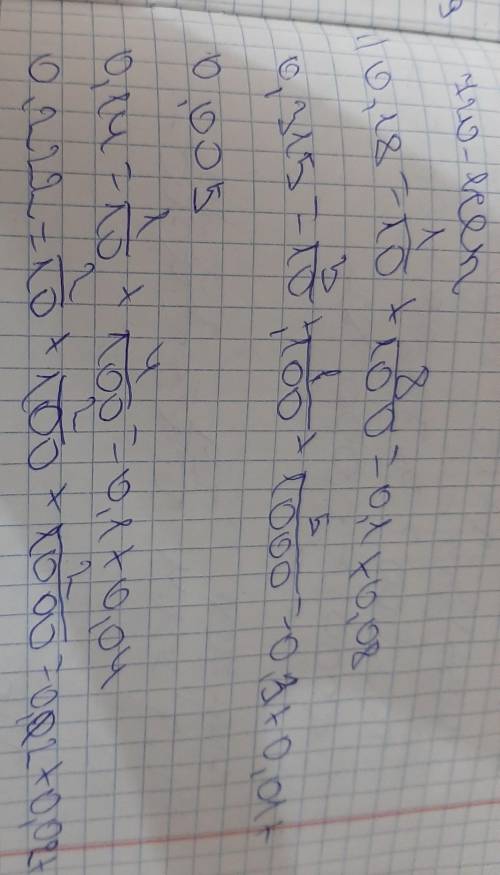 1) 0,18 = 1/10 + 8/100 = 0,1 + 0,08
0,315 = 3/10 + 1/100 + 5/1000 = 0,3 + 0,01 +
0,005
0,14 = 1/10 + 4/100 = 0,1 + 0,04
0,222 = 2/10 + 2/100 + 2/1000 = 0,2 + 0,02 +